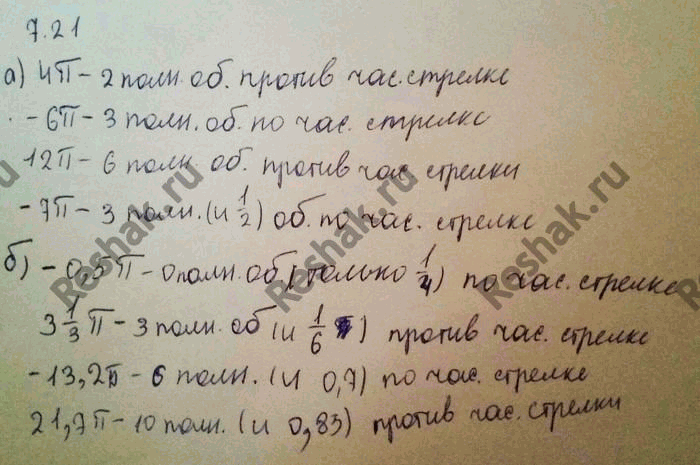 7.21
а) 4π - 2 полн. об. против час. стрелке
- 6π - 3 полн. об. по час. стрелке
12π - 6 полн. об. против час. стрелки
- 7π - 3 полн. (и 1/2) об. по час. стрелке
б) - 0,5π - 0 полн. об (только 1/4) по час. стрелке
3 1/3 π - 3 полн. об (и 1/6) против час. стрелке
- 13,2π - 6 полн. (и 0,7) по час. стрелке
21,7π - 10 полн. (и 0,83) против час. стрелки
Reshak.ru
Reshak.ru
Reshak.ru